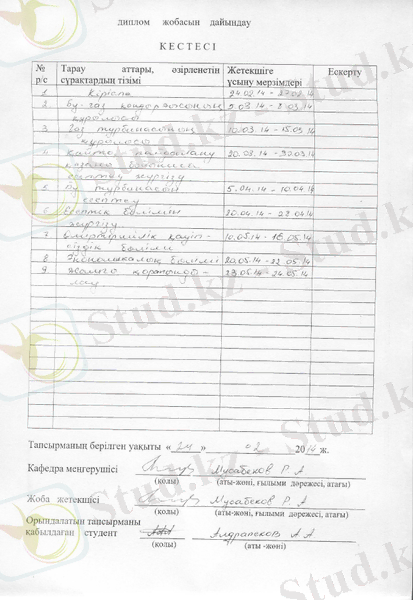 диплом жобасын дайындау
КЕСТЕСІ
№ р/с
Тарау аттары, әзірленетін сұрақтардың тізімі
Жетекшіге ұсыну мерзімдері
Ескерту
1 Кіріспе 24.02.14 - 27.02.14
2 Бу-газ қондырғысының 5.03.14 - 8.03.14
құрылысы
3 Газ турбинасының 10.03.14 - 15.03.14
құрылысы
4 Қайта 20.03.14 - 30.03.14
есептеу жүргізу
5 Бу турбинасын 5.04.14 - 10.04.14
есептеу
6 Есептеу бөлімін 20.04.14 - 28.04.14
жүргізу
7 Өміртіршілік қауіп- 10.05.14 - 16.05.14
сіздік бөлімі
8 Экономикалық бөлімі 20.05.14 - 22.05.14
9 Жалпы қорытынды- 23.05.14 - 24.05.14
лау
Тапсырманың берілген уақыты « 24 » 02 2014 ж.
Кафедра меңгерушісі Мусабеков Р А
(қолы) (аты-жөні, ғылыми дәрежесі, атағы)
Жоба жетекшісі Мусабеков Р. А
(қолы) (аты-жөні, ғылыми дәрежесі, атағы)
Орындалатын тапсырманы
қабылдаған студент А А
(қолы) (аты -жөні)
Stud.kz
Stud.kz
Stud.kz
Stud.kz
Stud.kz